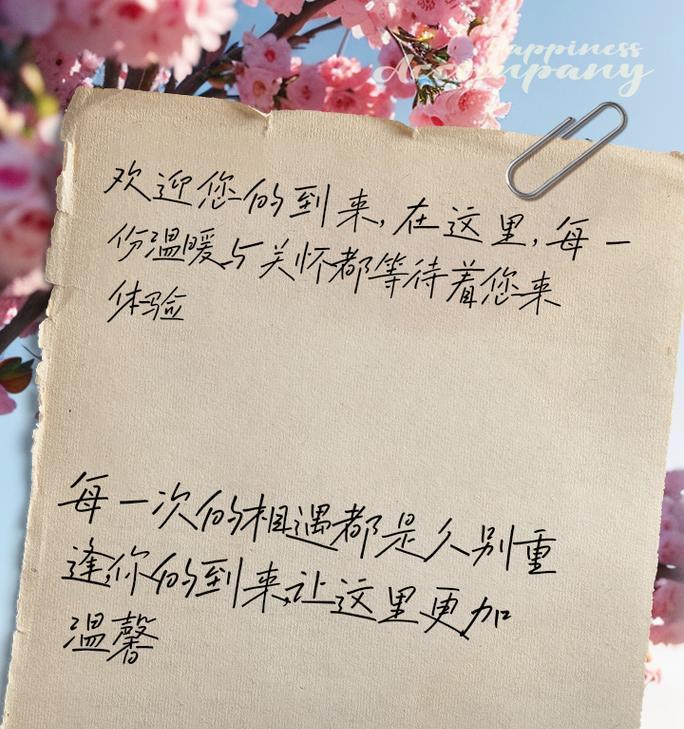 Happiness
Accompany
欢迎您的到来,在这里,每一
份温暖与关怀都等待着您来
体验
每一次的相遇都是久别重
逢,你的到来,让这里更加
温馨